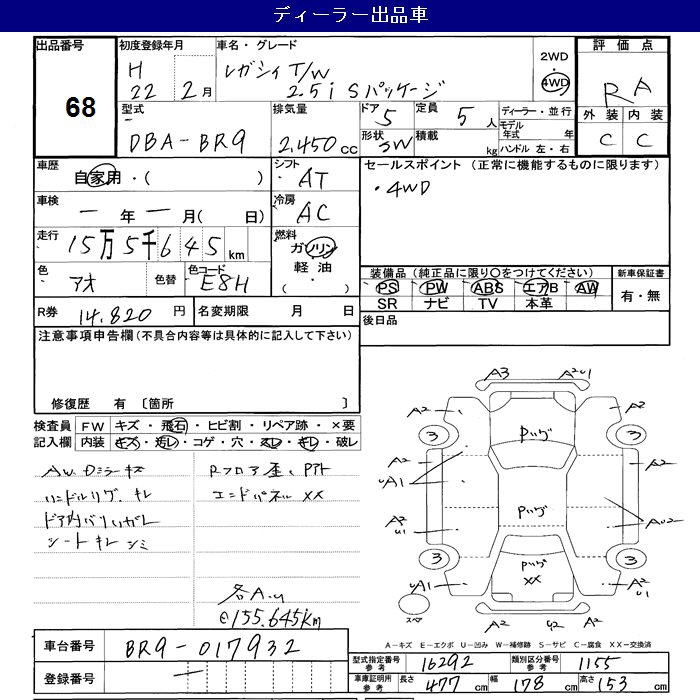 ディーラー出品車
出品番号
68
初度登録年月
H 22年 2月
車名・グレード
レガシィ T/W
2.5i Sパッケージ
2WD
4WD
評価点
RA
外装 内装
C C
型式
DBA-BR9
排気量
2,450 cc
ドア 5
形状 SW
定員 5 人
積載 kg
ディーラー・並行
モデル年式 年
ハンドル 左・右
車歴
自家用・( )
シフト
AT
セールスポイント (正常に機能するものに限ります)
・4WD
車検
ー 年 ー 月( 日)
冷房
AC
走行
15万5千645 km
燃料
ガソリン
軽油
・( )
色
アオ
色替
色コード
E8H
装備品 (純正品に限り〇をつけてください)
PS PW ABS エアB AW
SR ナビ TV 本革
新車保証書
有・無
R券 14,820 円
名変期限 月 日
後日品
注意事項申告欄 (不具合内容等は具体的に記入して下さい)
修復歴 有 〔箇所 〕
検査員記入欄
FW キズ・飛石・ヒビ割・リペア跡・×要
内装 キズ・汚レ・コゲ・穴・スレ・キレ・破レ
AW Dミラーキズ
ハンドルリグ、キレ
シートキレ シミ
Rフロア歪、アト
エンドパネル ××
各A.U
@155.645km
A3 A2U1
A2 A2
3 3
Pいグ
A2 A2
UA1
Pいグ
A2 U1
AU2
3 3
Pいグ
××
UA1
A2 U1
スペア
A2 U2 A2
A-キズ E-エクボ U-凹み W-補修跡 S-サビ C-腐食 XX-交換済
車台番号 BR9-017932
登録番号 ー
型式指定番号 参考 16292
類別区分番号 参考 1155
車庫証明用 参考
長さ 477 cm 幅 178 cm 高さ 153 cm